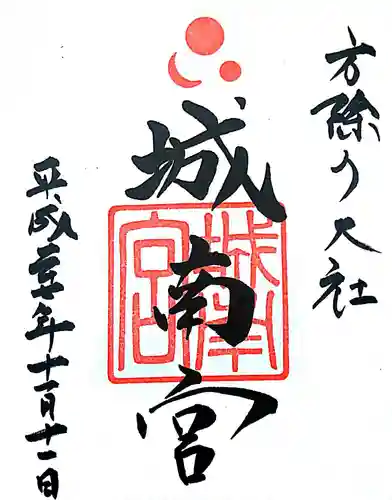 方除の大社
城南宮
城南宮
平成二十五年十一月十一日